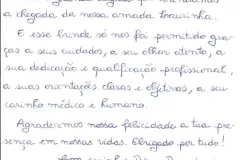 a chegada da nossa amada lourinha.
E esse brinde só nos foi permitido gra-
ças a seus cuidados, a seu olhar atento, a
sua dedicação e qualificação profissional,
a suas orientações claras e objetivas, a seu
carinho médico e humano.
Agradecemos nossa felicidade a tua pre-
sença em nossas vidas. Obrigado por tudo!